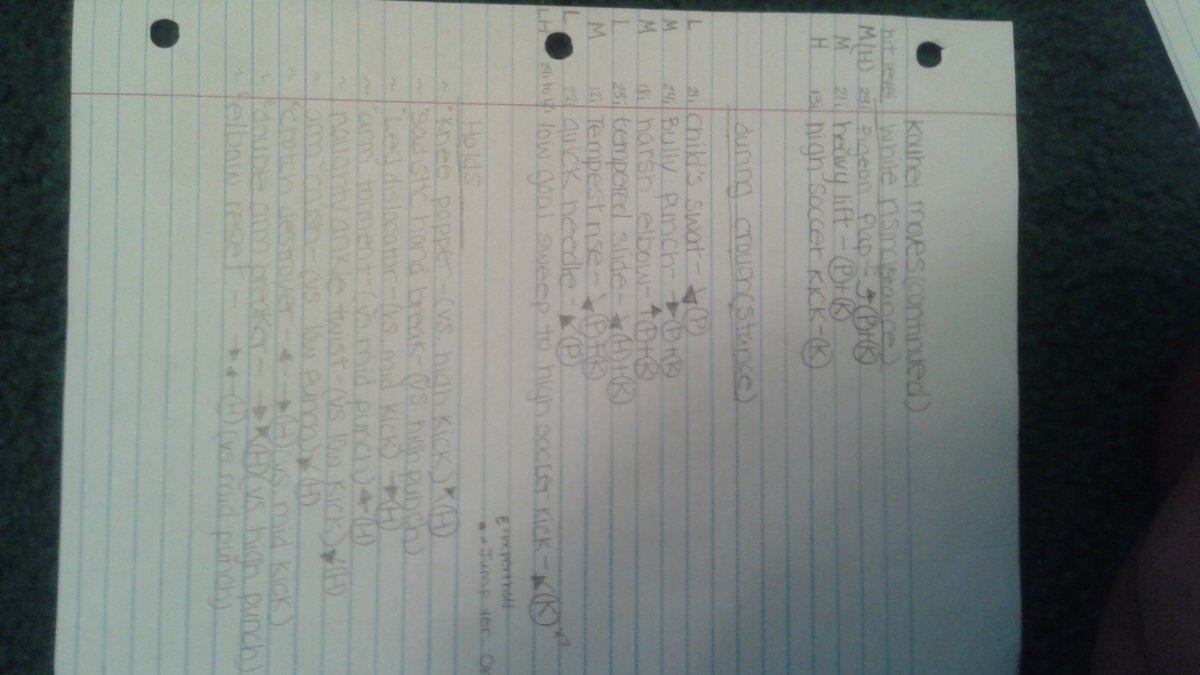 Kouhei moves (continued)
hit level while rising (stance)
M(H) 23i Pigeon Pulp - (P)+(K)
M 21i heavy lift - (P)+(K)
H 13i high soccer kick - (K)
during crouch (stance)
L 21i child's swat - (P)
M 24i Bully punch - (P)+(K)
M 18i harsh elbow - (P)+(K)
L 25i tempered slide - (H)+(K)
M 12i Tempest rise - (P)+(K)
L 22i quick needle - (P)
LH low goal sweep to high soccer kick - (K)
E = expert hold
Jump
Holds
~ "Knee popper - (vs high kick) (H)
~ "Sadistic hand break - (vs high punch)
~ "Leg dislocator - (vs mid kick) (H)
~ "arm" torment - (vs mid punch) (H)
~ naughty ankle twist - (vs low kick) (H)
~ arm crash - (vs low punch) (H)
~ "crotch destroyer - (H) (vs mid kick)
~ "double arm breaker - (H) (vs high punch)
~ "elbow reset - (H) (vs mid punch)